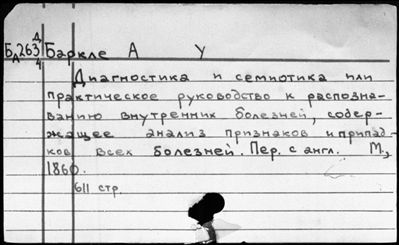 Д
Б263 Баркле А У
Д 4
Диагностика и семиотика или
практическое руководство к распозна-
ванию внутренних болезней, содер-
жащее анализ признаков и припад-
ков всех болезней. Пер. с англ. М.,
1860.
611 стр